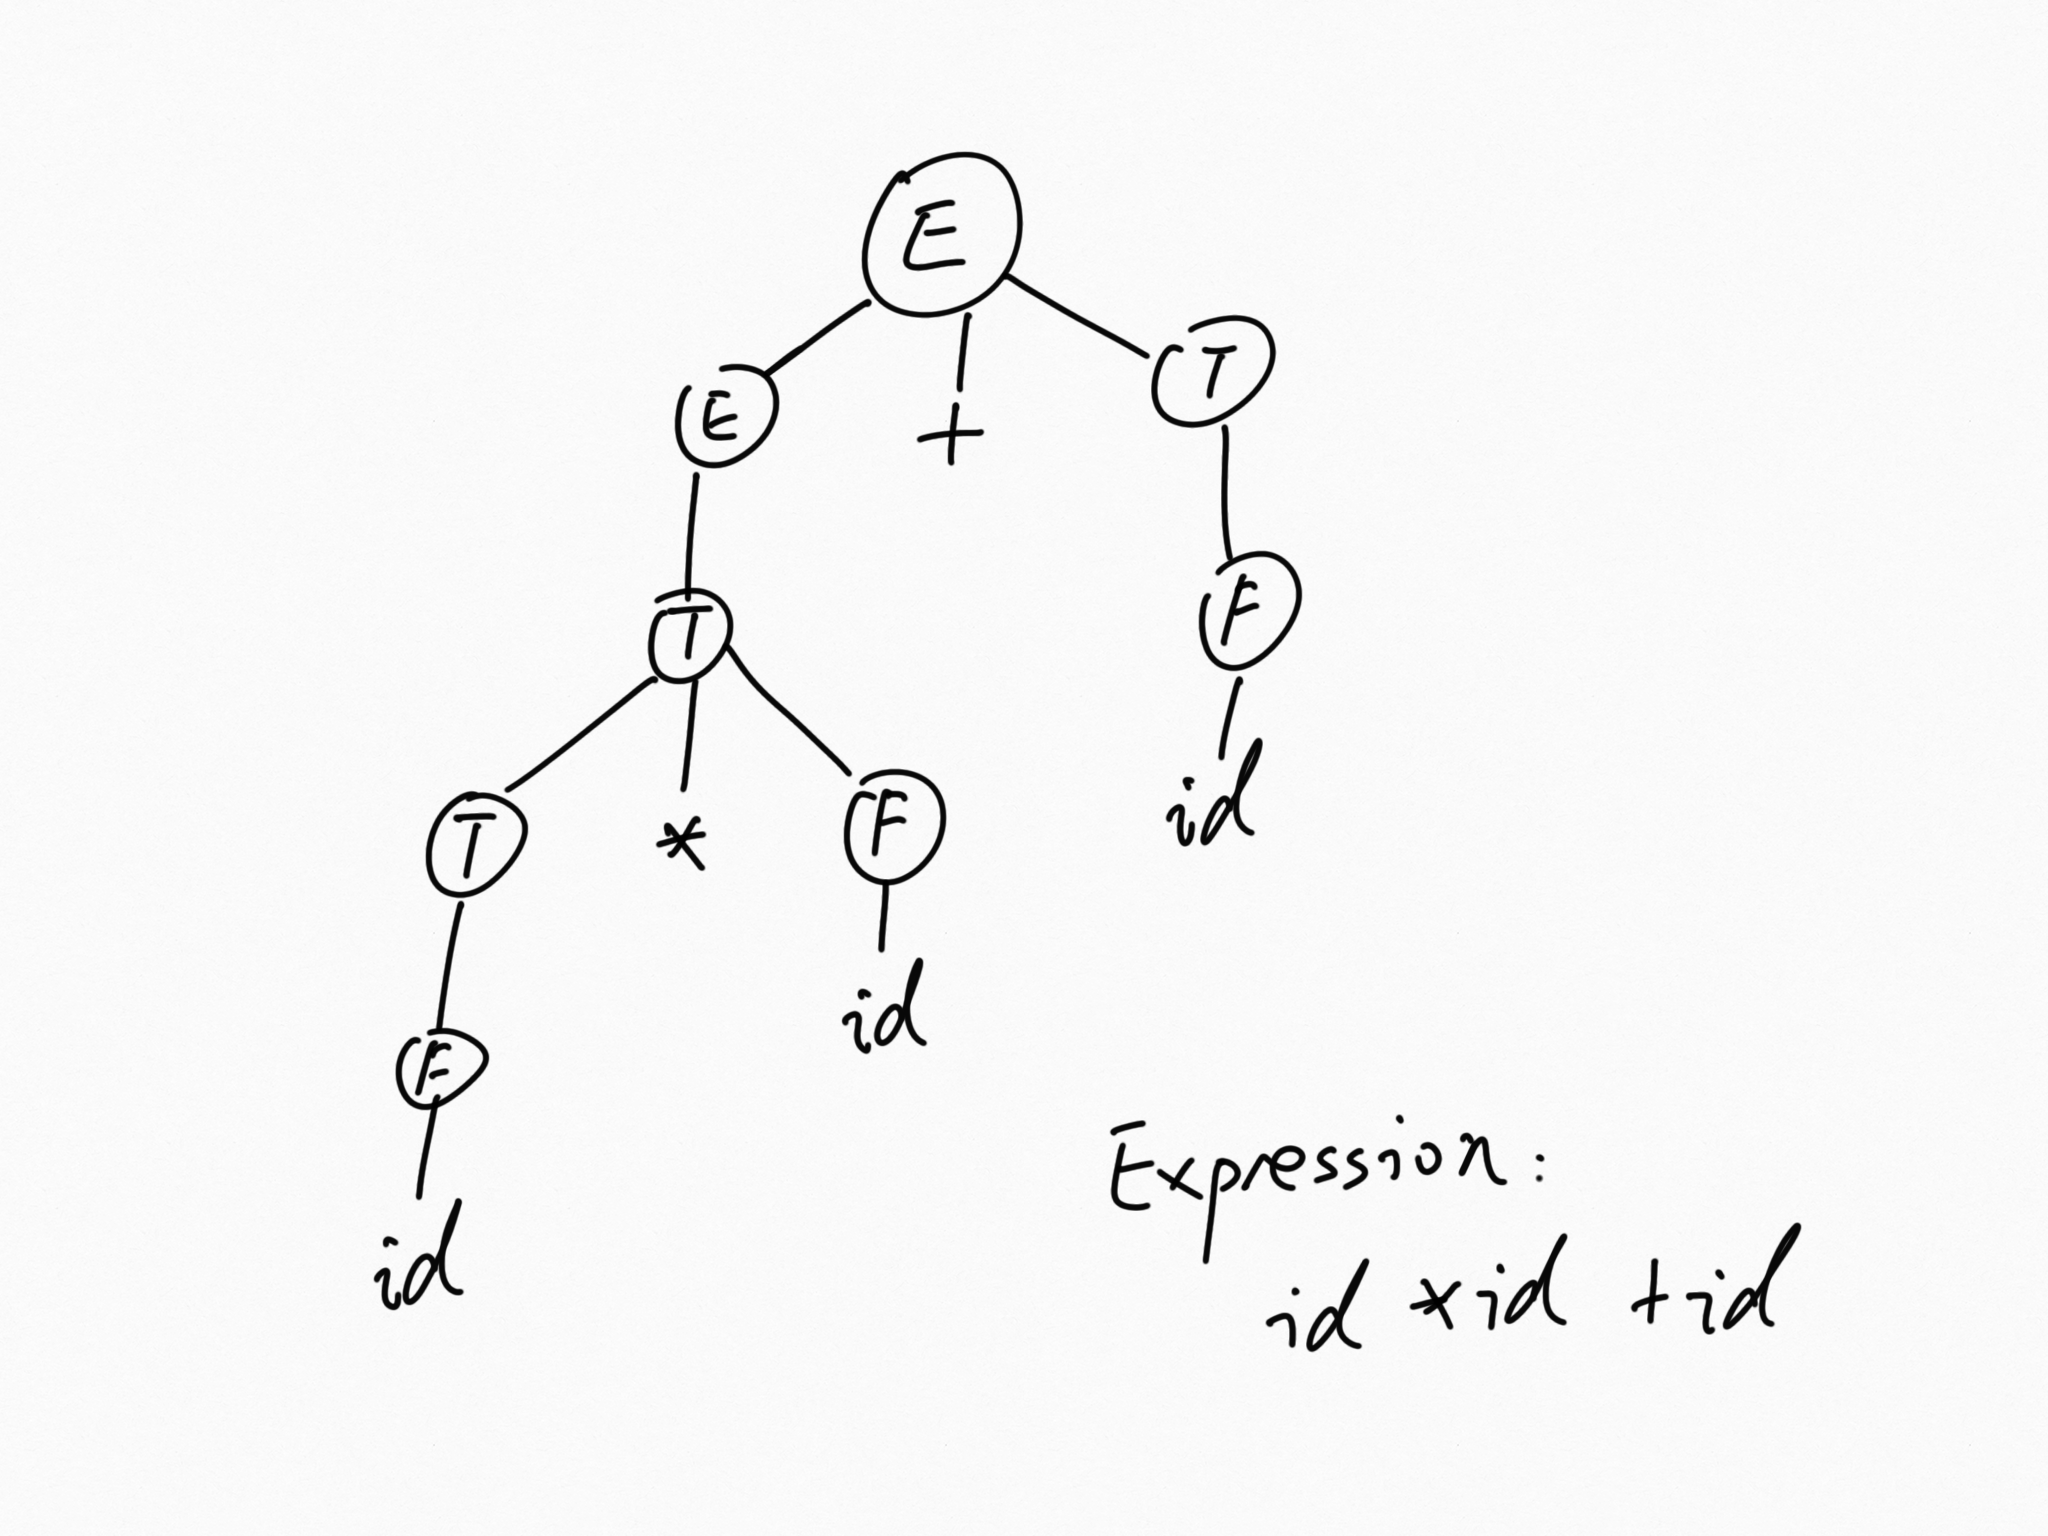 E
E + T
T F
T * F id
F id
id
Expression:
id * id + id